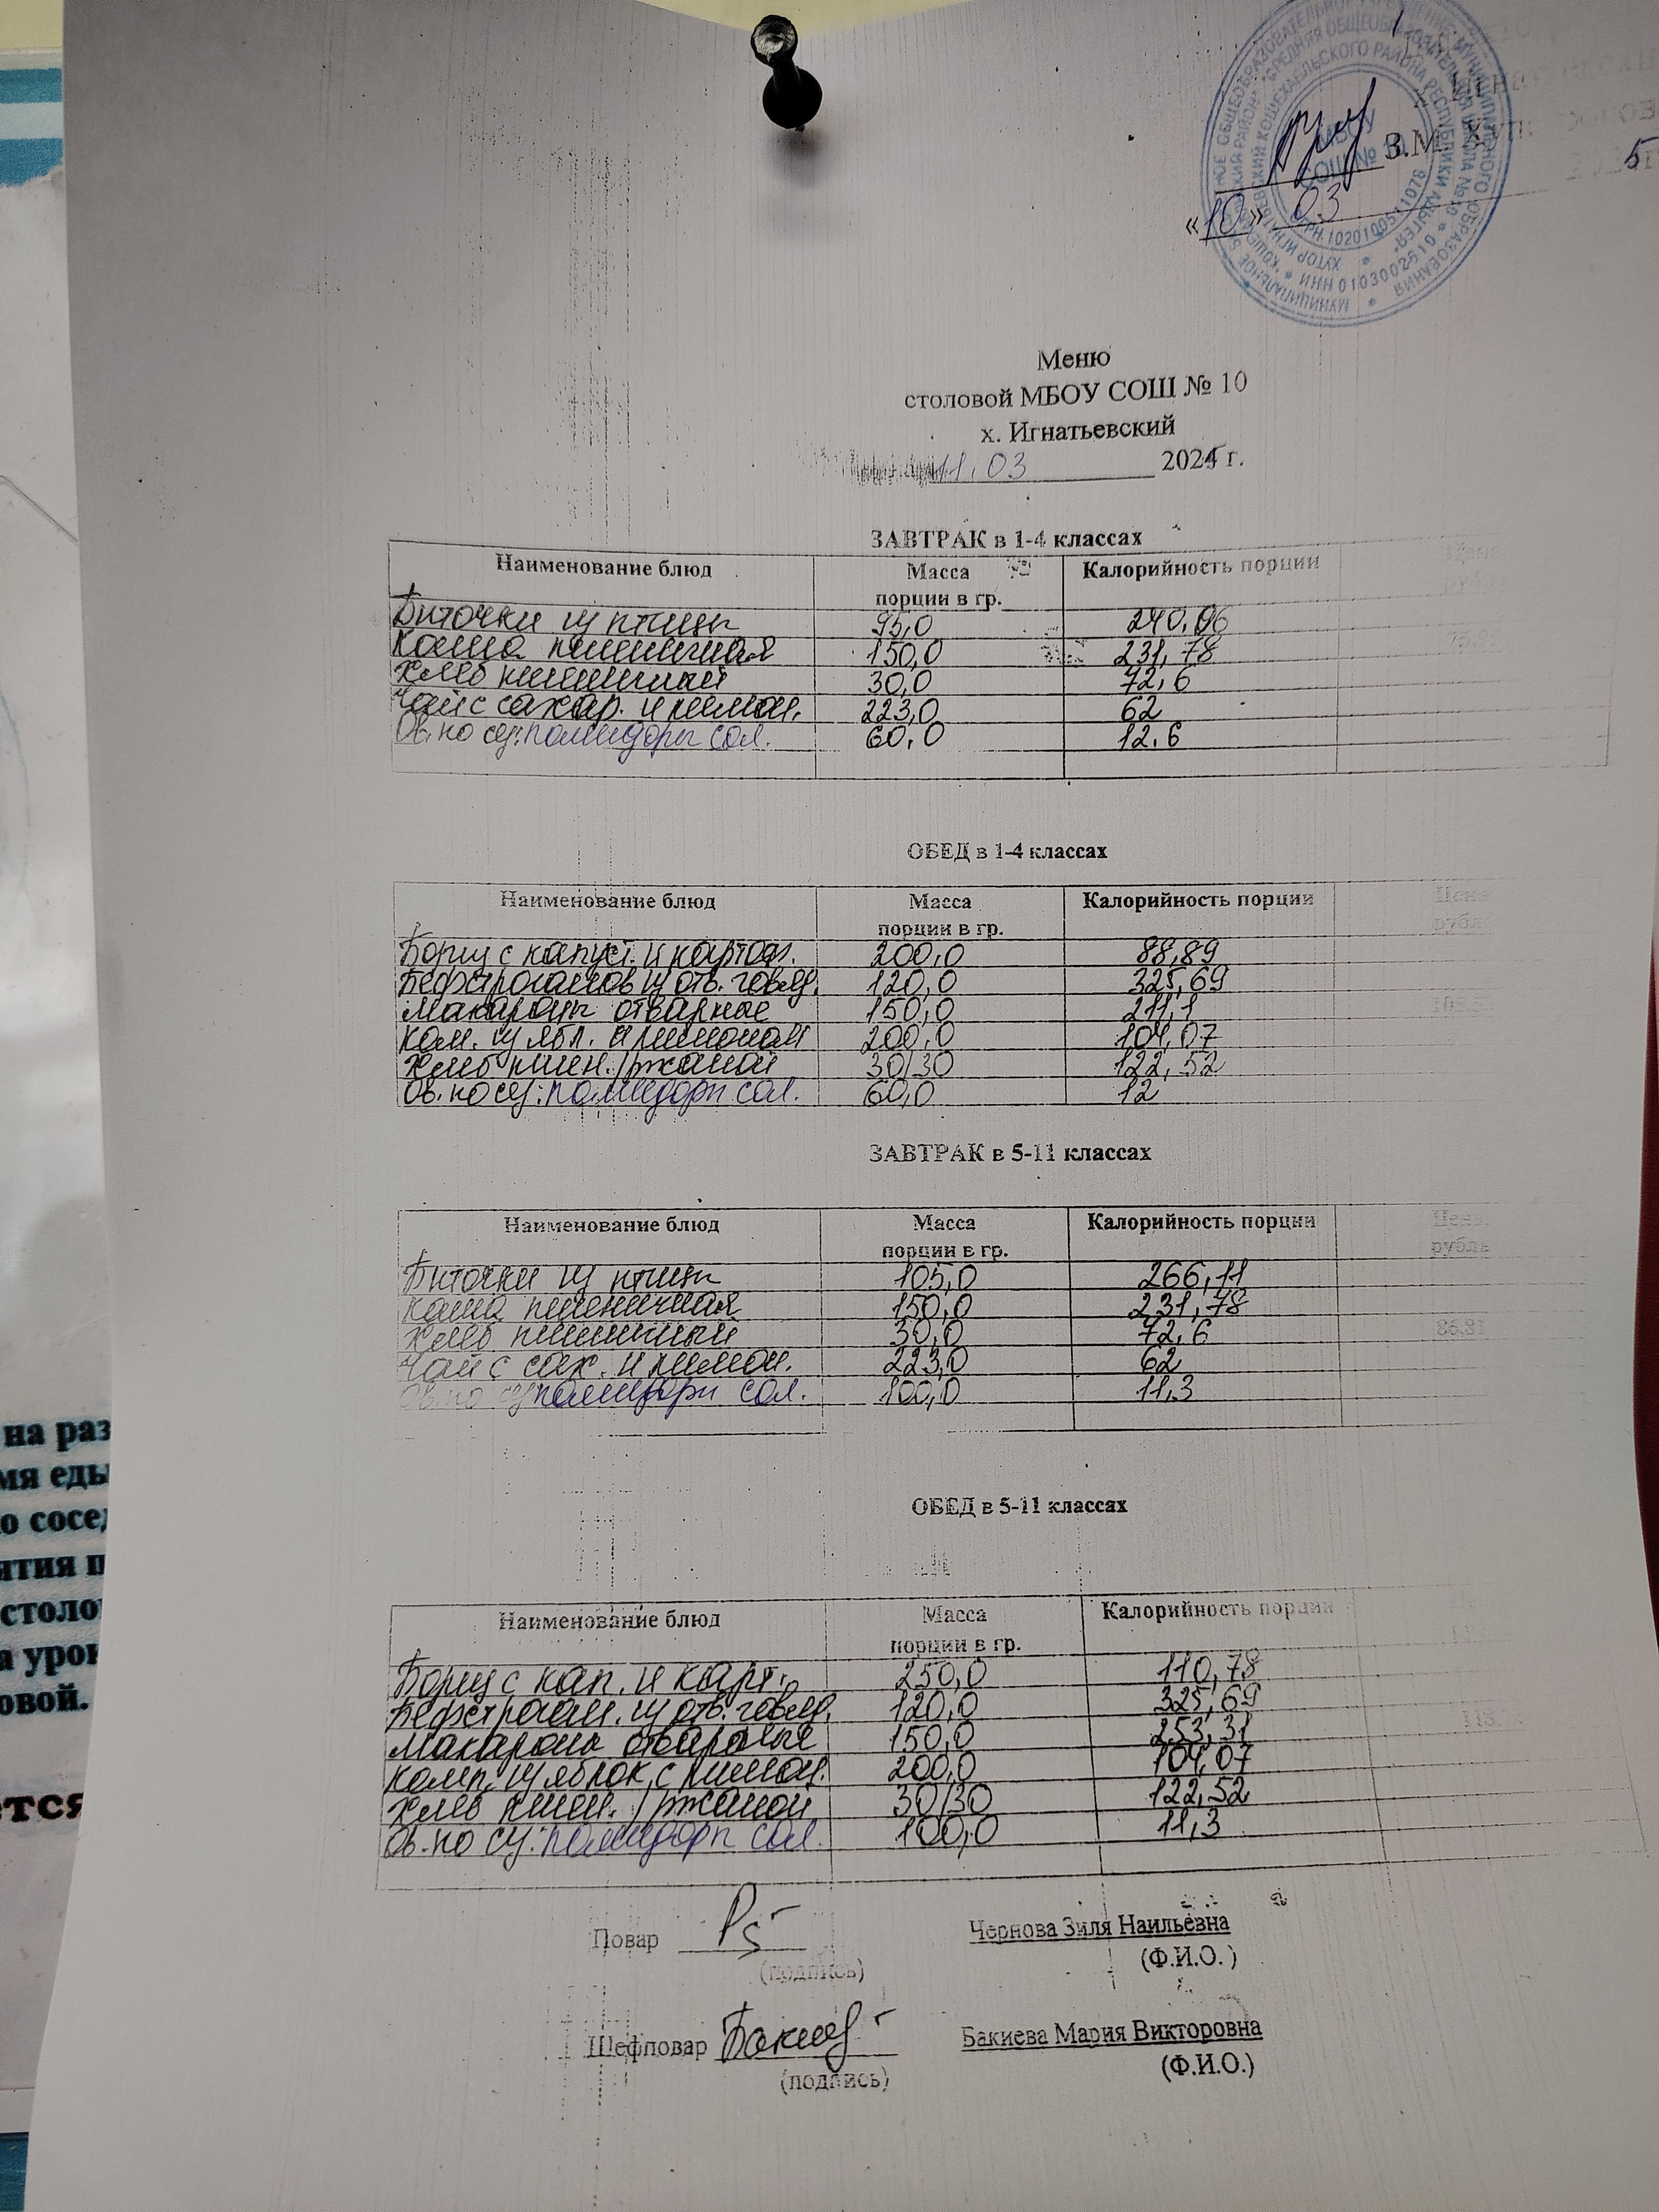 МБОУ
СОШ № 10
В.М.
«10» 03
Меню
столовой МБОУ СОШ № 10
х. Игнатьевский
11.03 2025 г.
ЗАВТРАК в 1-4 классах
Наименование блюд Масса порции в гр. Калорийность порции Цена рубль
Биточки из птицы 95,0 240,06
Каша пшеничная 150,0 231,78
Хлеб пшеничный 30,0 72,6
Чай с сахар. и лимон. 223,0 62
Ов. по сез: помидоры сол. 60,0 12,6
ОБЕД в 1-4 классах
Наименование блюд Масса порции в гр. Калорийность порции Цена рубль
Борщ с капуст. и картоф. 200,0 88,89
Бефстроганов из отв. говяд. 120,0 325,69
Макароны отварные 150,0 211,1
Ком. из ябл. и лимонов 200,0 104,07
Хлеб пшен./ржаной 30/30 122,52
Ов. по сез: помидоры сол. 60,0 12
ЗАВТРАК в 5-11 классах
Наименование блюд Масса порции в гр. Калорийность порции Цена рубль
Биточки из птицы 105,0 266,11
Каша пшеничная 150,0 231,78
Хлеб пшеничный 30,0 72,6
Чай с сах. и лимон. 223,0 62
Ов. по сез помидоры сол. 100,0 11,3
ОБЕД в 5-11 классах
Наименование блюд Масса порции в гр. Калорийность порции
Борщ с кап. и карт. 250,0 110,78
Бефстроган. из отв. говяд. 120,0 325,69
Макароны отварные 150,0 253,31
Комп. из яблок с лимон. 200,0 104,07
Хлеб пшен./ржаной 30/30 122,52
Ов. по сез: помидоры сол. 100,0 11,3
Повар Чернова Зиля Наильевна
(подпись) (Ф.И.О.)
Шефповар Бакиев Бакиева Мария Викторовна
(подпись) (Ф.И.О.)
на раз
мя еды
о сосед
ятия п
столо
а урок
овой.
ется